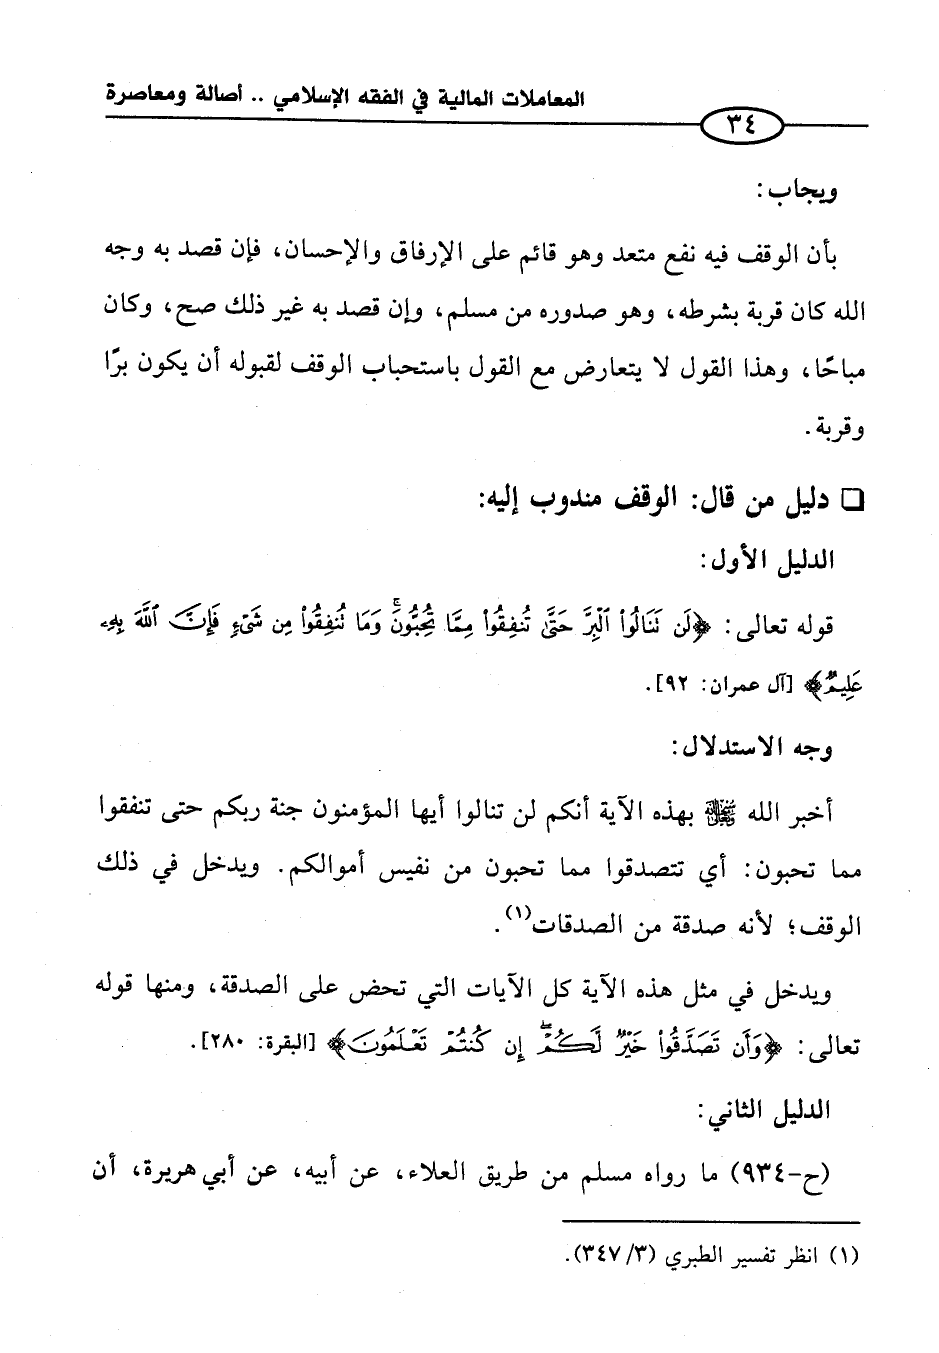 المعاملات المالية في الفقه الإسلامي .. أصالة ومعاصرة
٣٤
ويجاب:
بأن الوقف فيه نفع متعد وهو قائم على الإرفاق والإحسان، فإن قصد به وجه
الله كان قربة بشرطه، وهو صدوره من مسلم، وإن قصد به غير ذلك صح، وكان
مباحًا، وهذا القول لا يتعارض مع القول باستحباب الوقف لقبوله أن يكون برًا
وقربة.
❏ دليل من قال: الوقف مندوب إليه:
الدليل الأول:
قوله تعالى: ﴿لَن تَنَالُواْ ٱلْبِرَّ حَتَّىٰ تُنفِقُواْ مِمَّا تُحِبُّونَۚ وَمَا تُنفِقُواْ مِن شَىْءٍ فَإِنَّ ٱللَّهَ بِهِۦ
عَلِيمٌ﴾ [آل عمران: ٩٢].
وجه الاستدلال:
أخبر الله ﷻ بهذه الآية أنكم لن تنالوا أيها المؤمنون جنة ربكم حتى تنفقوا
مما تحبون: أي تتصدقوا مما تحبون من نفيس أموالكم. ويدخل في ذلك
الوقف؛ لأنه صدقة من الصدقات(١).
ويدخل في مثل هذه الآية كل الآيات التي تحض على الصدقة، ومنها قوله
تعالى: ﴿وَأَن تَصَدَّقُواْ خَيْرٌ لَّكُمْۖ إِن كُنتُمْ تَعْلَمُونَ﴾ [البقرة: ٢٨٠].
الدليل الثاني:
(ح-٩٣٤) ما رواه مسلم من طريق العلاء، عن أبيه، عن أبي هريرة، أن
(١) انظر تفسير الطبري (٣/٣٤٧).